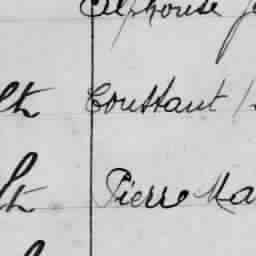 Alphonse
lt Constant
lt Pierre Ma